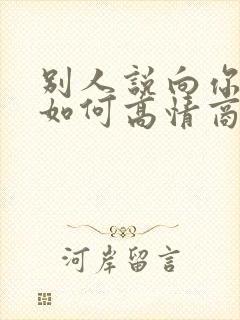 别人説向你
如何高情商
河岸留言